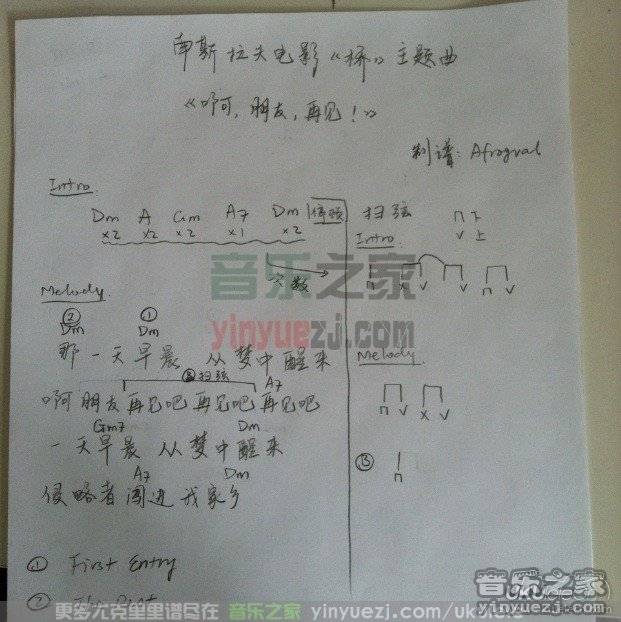 南斯拉夫电影《桥》主题曲
《啊,朋友,再见!》
制谱: Afrogual
Intro
Dm A Gm A7 Dm 停顿
x2 x2 x2 x1 x2
次数
Melody
② ①
Dm Dm
那一天早晨 从梦中醒来
③扫弦 A7
啊朋友再见吧 再见吧 再见吧
Gm7 Dm
一天早晨 从梦中醒来
A7 Dm
侵略者闯进我家乡
① First Entry
②
扫弦
n 下
v 上
Intro
n n v n v n v
Melody
n v x v
③
n
音乐之家
yinyuezj.com
更多尤克里里谱尽在 音乐之家 yinyuezj.com/ukulele
音乐之家
yinyuezj.com